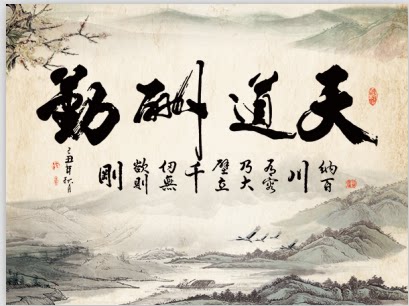 天道酬勤
納百川有容乃大壁立千仞無欲則剛
己丑年秋月